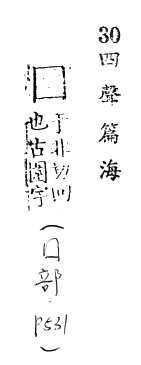 30四聲篇海
囗于非切回
也古圍字
(囗部. P531)